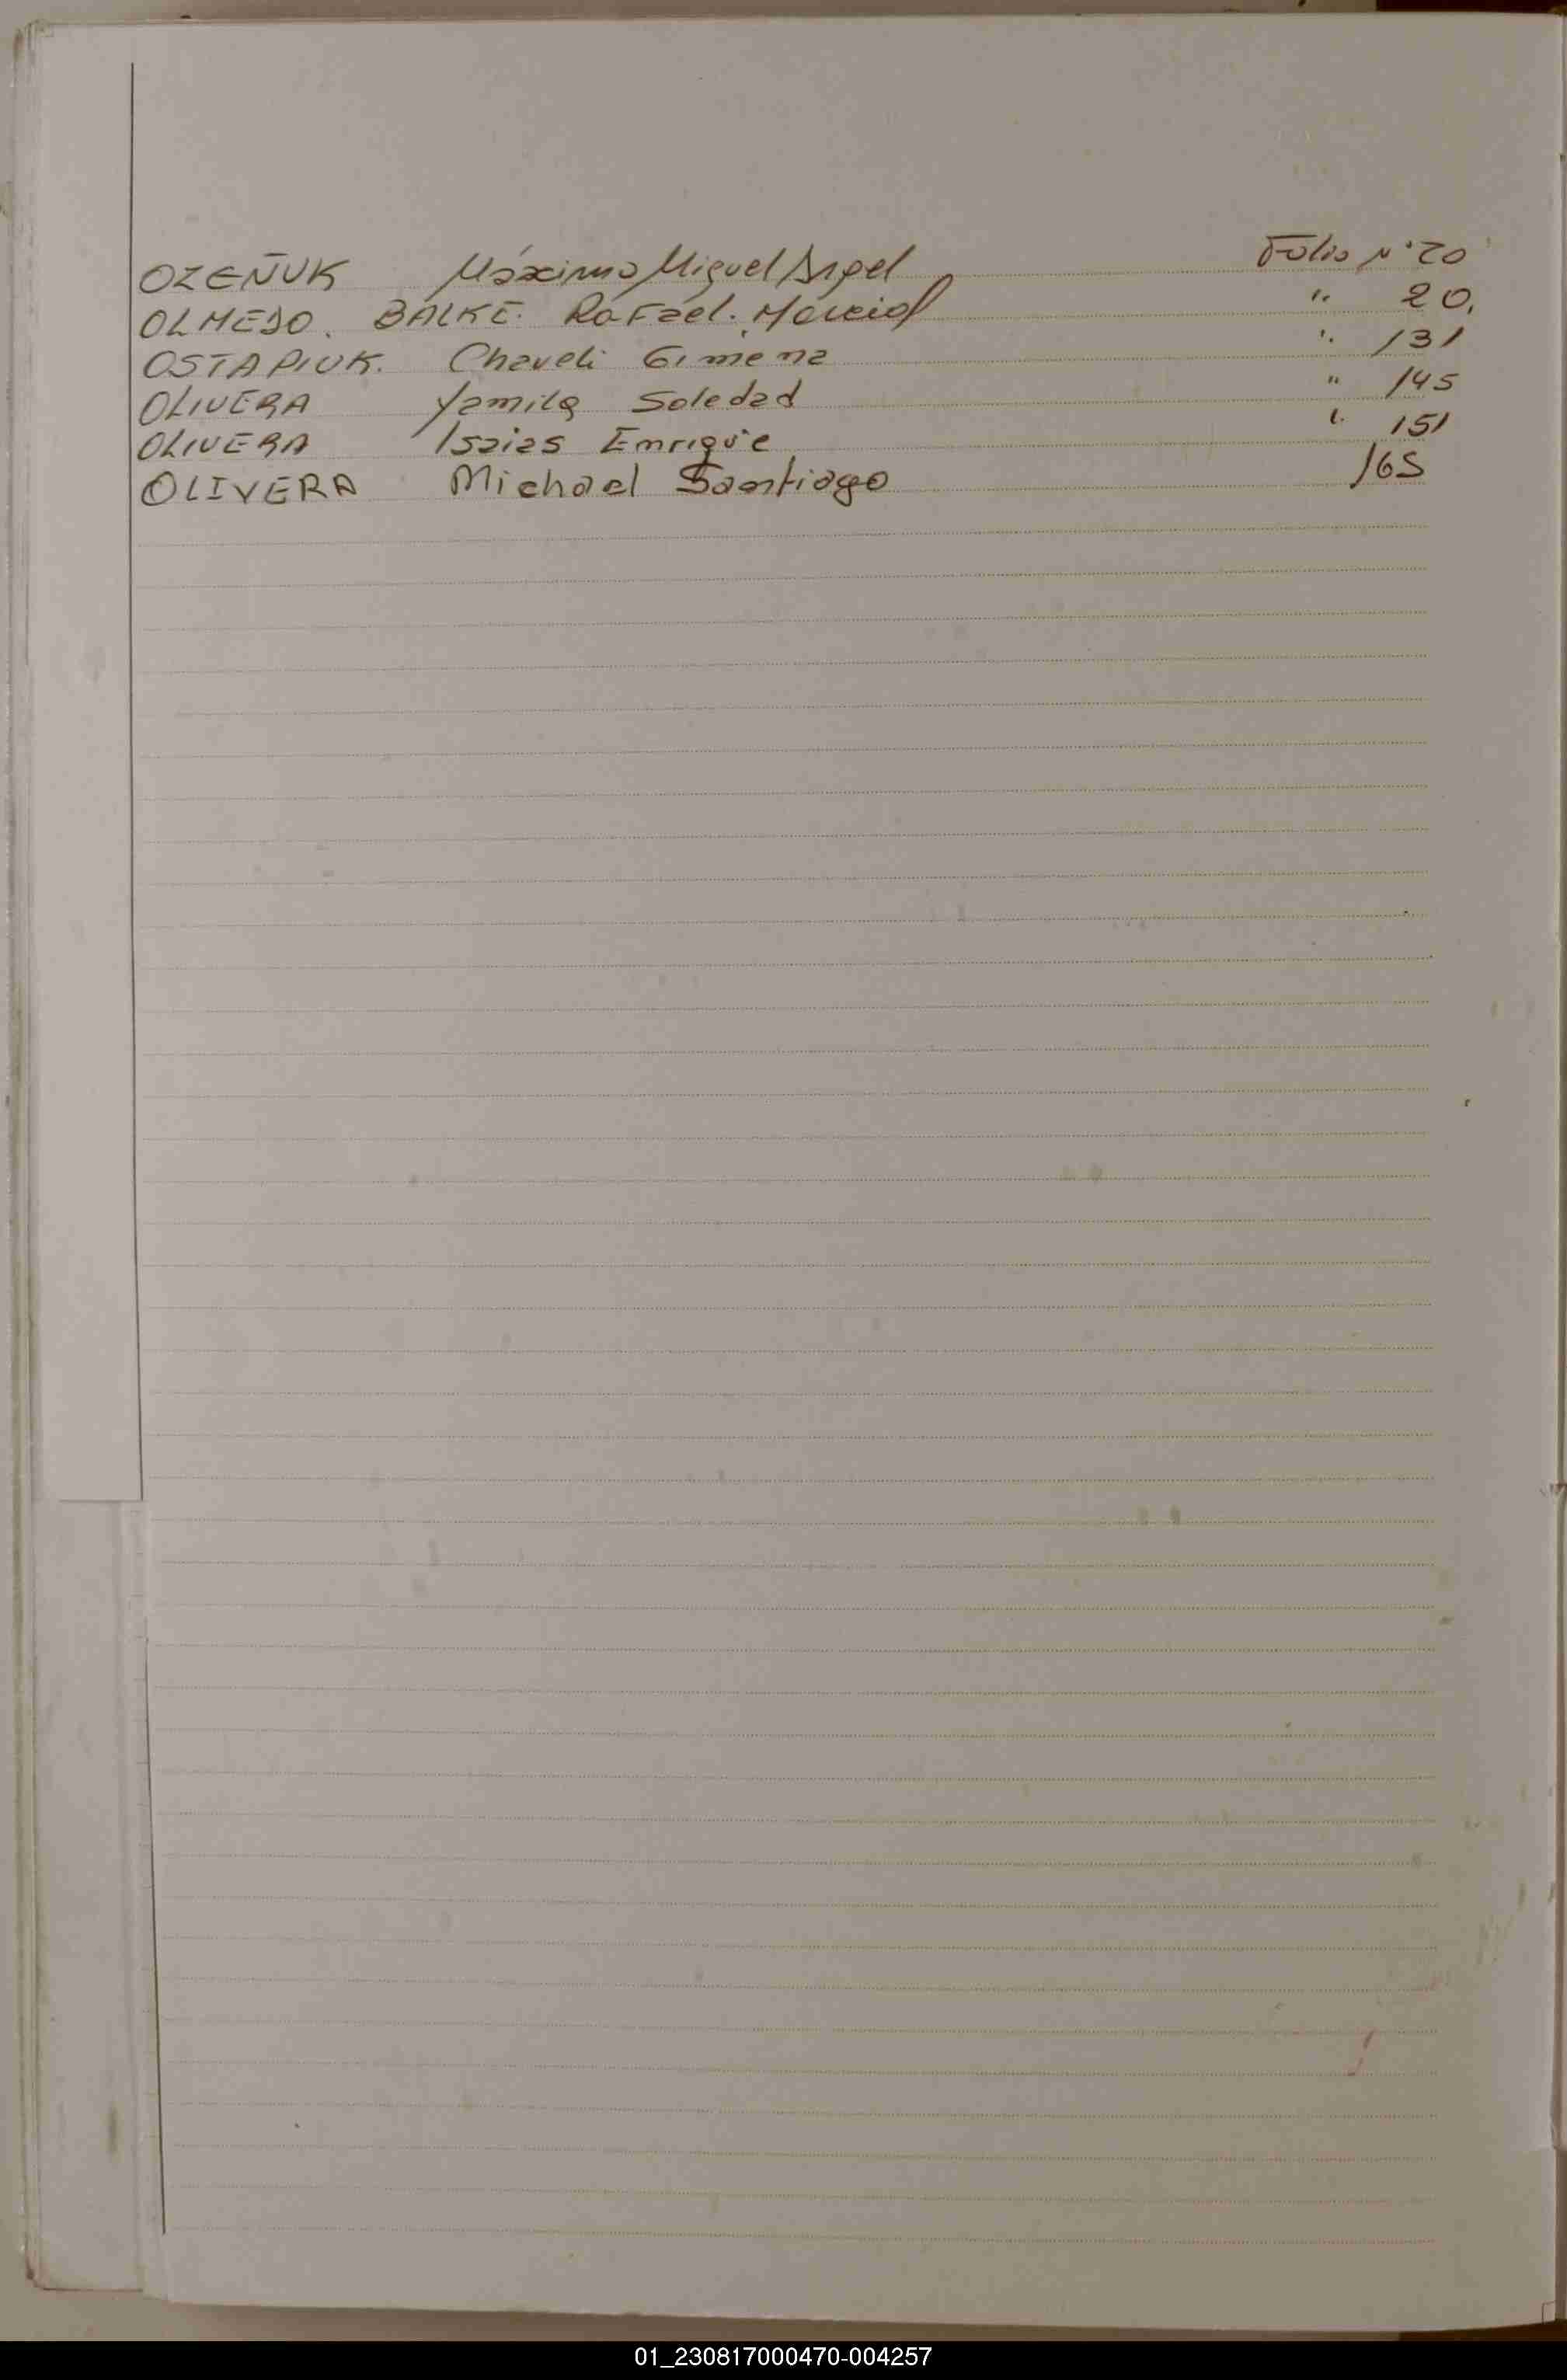 OZEÑUK Máximo Miguel Angel Folio N° 20
OLMEDO. BALKE. Rafael. Marcial " 20.
OSTAPIUK. Chaveli Gimena " 131
OLIVERA Yamila Soledad " 145
OLIVERA Isaias Enrique " 151
OLIVERA Michael Santiago 165
01_230817000470-004257